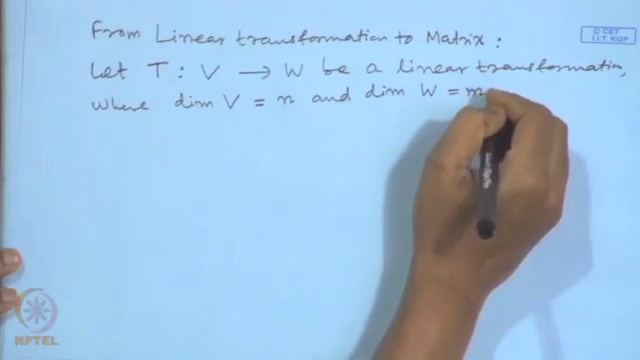 From Linear transformation to Matrix :
© CET
I.I.T. KGP
Let T : V → W be a linear transformation,
where dim V = n and dim W = m
NPTEL